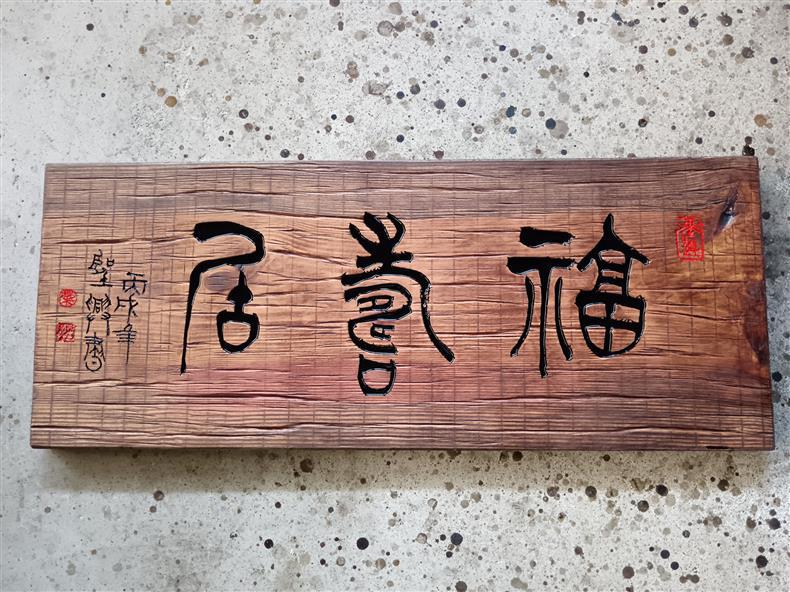 福壽居
丙戌年
聖卿書